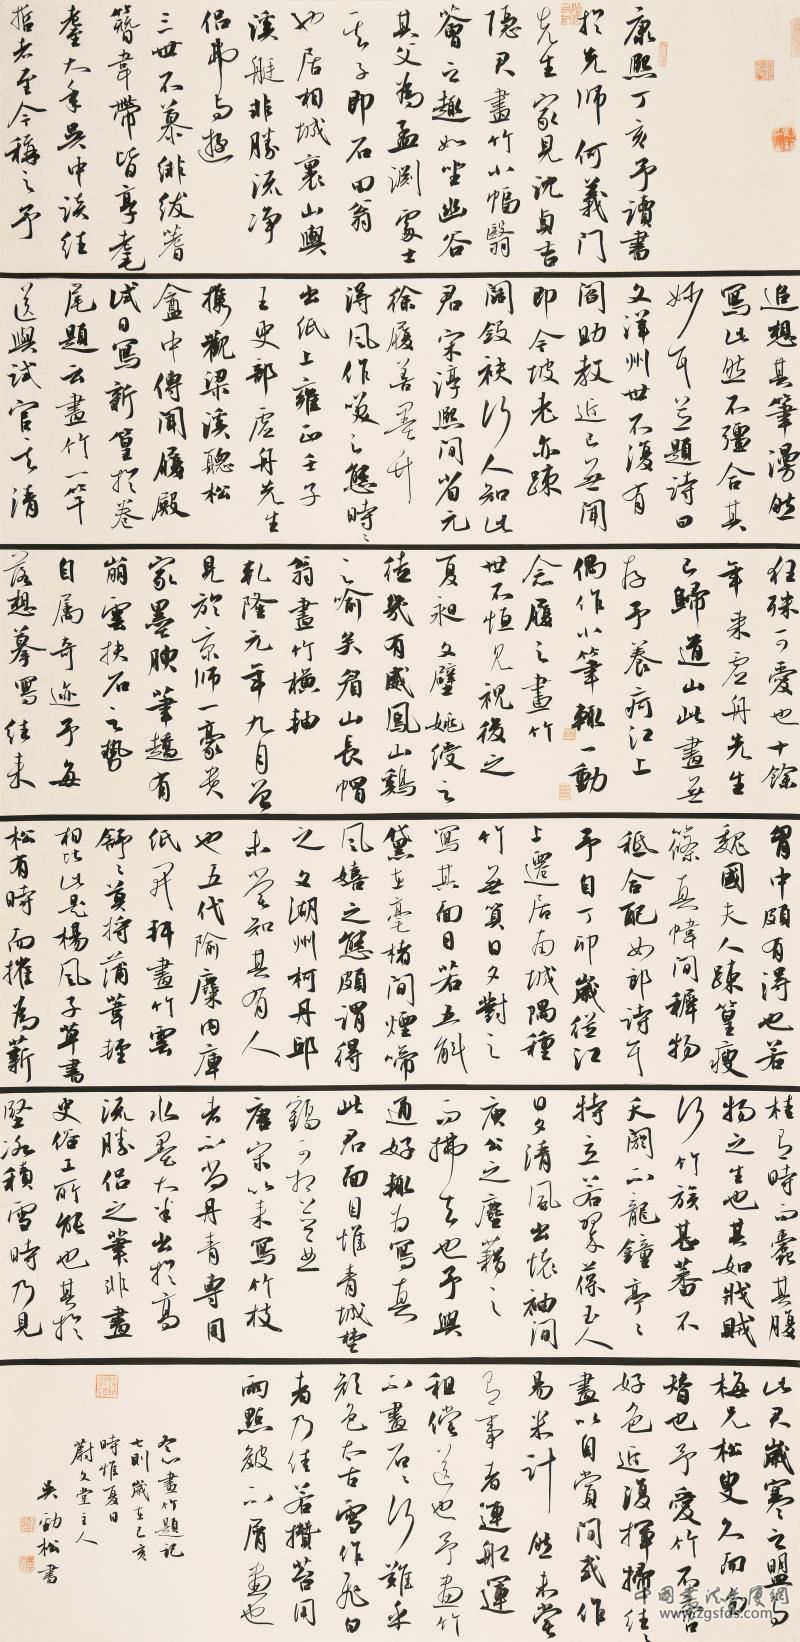 康熙丁亥予讀書
於先師何義門
先生家見沈貞吉
隱君畫竹小幅翳
薈之趣如坐幽谷
其父為孟淵處士
其子即石田翁
也居相城裏山輿
溪艇非勝流净
侶弗与遊
三世不慕绯绂簪
簪韋帶皆享耄
耋大年吳中談往
哲者至今稱之予
追想其筆漫然
寫此然不彊合其
妙耳並題詩曰
文洋州世不復有
閻助教近已無聞
即令坡老亦疎
闊斂袂何人知此
君宋淳熙間省元
徐履善墨竹
得風作笑之態時時
出紙上雍正壬子
王吏部虛舟先生
攜觀梁溪聽松
盦中傳聞履殿
試日寫新篁於卷
尾題云畫竹一竿
送與試官其清
狂殊可愛也十餘
年來虛舟先生
已歸道山此畫無
存予養疴江上
偶作小筆輒一動
念履之畫竹
世不恒見視後之
夏昶文璧姚绶之
徒幾有威鳳山鷄
之喻矣眉山長帽
翁畫竹橫軸
乾隆元年九月曾
見於京師一豪貴
家墨腴筆趫有
崩雲抉石之勢
自属奇迹予每
落想摹寫往來
胷中頗有得也若
魏國夫人疎篁瘦
篠真幃間穉物
秪合配女郎詩耳
予自丁卯歲從江
上遷居南城隅種
竹無算日夕對之
寫其面目若五斛
黛在毫楮間煙啼
風嬉之態頗謂得
之文湖州柯丹邱
未嘗知其有人
也五代隃麋内庫
紙开拜畫竹雲
舒舒莫将蒲葦輕
相比此是楊風子草書
松有時而摧為薪
桂有時而蠹其腹
物之生也其如戕賊
何竹族甚蕃不
夭閼不龍鐘亭亭
特立若翠葆玉人
日夕清風出懷袖間
庾公之塵藉之
而拂去也予與
通好輒為寫真
此君面目惟青城楚
鶴可相並
唐宋以來寫竹枝
者不尚丹青專用
水墨大半出於高
流勝侣之筆非畫
史俗工所能也其於
堅冰積雪時乃見
此君歲寒之盟与
梅兄松叟久而勿
替也予愛竹不啻
好色近復揮掃往往
畫以自賞間或作
易米計然未嘗
有事者連船運
租償送也予畫竹
不畫石石何難乎
顏色太古雪作飛白
者乃佳若攢苔用
兩點皴不屑畫也
冬心畫竹題記
七則歲在己亥
時惟夏日
蔚文堂主人
吴勁松書
中国书法发展网
www.zgsfds.com